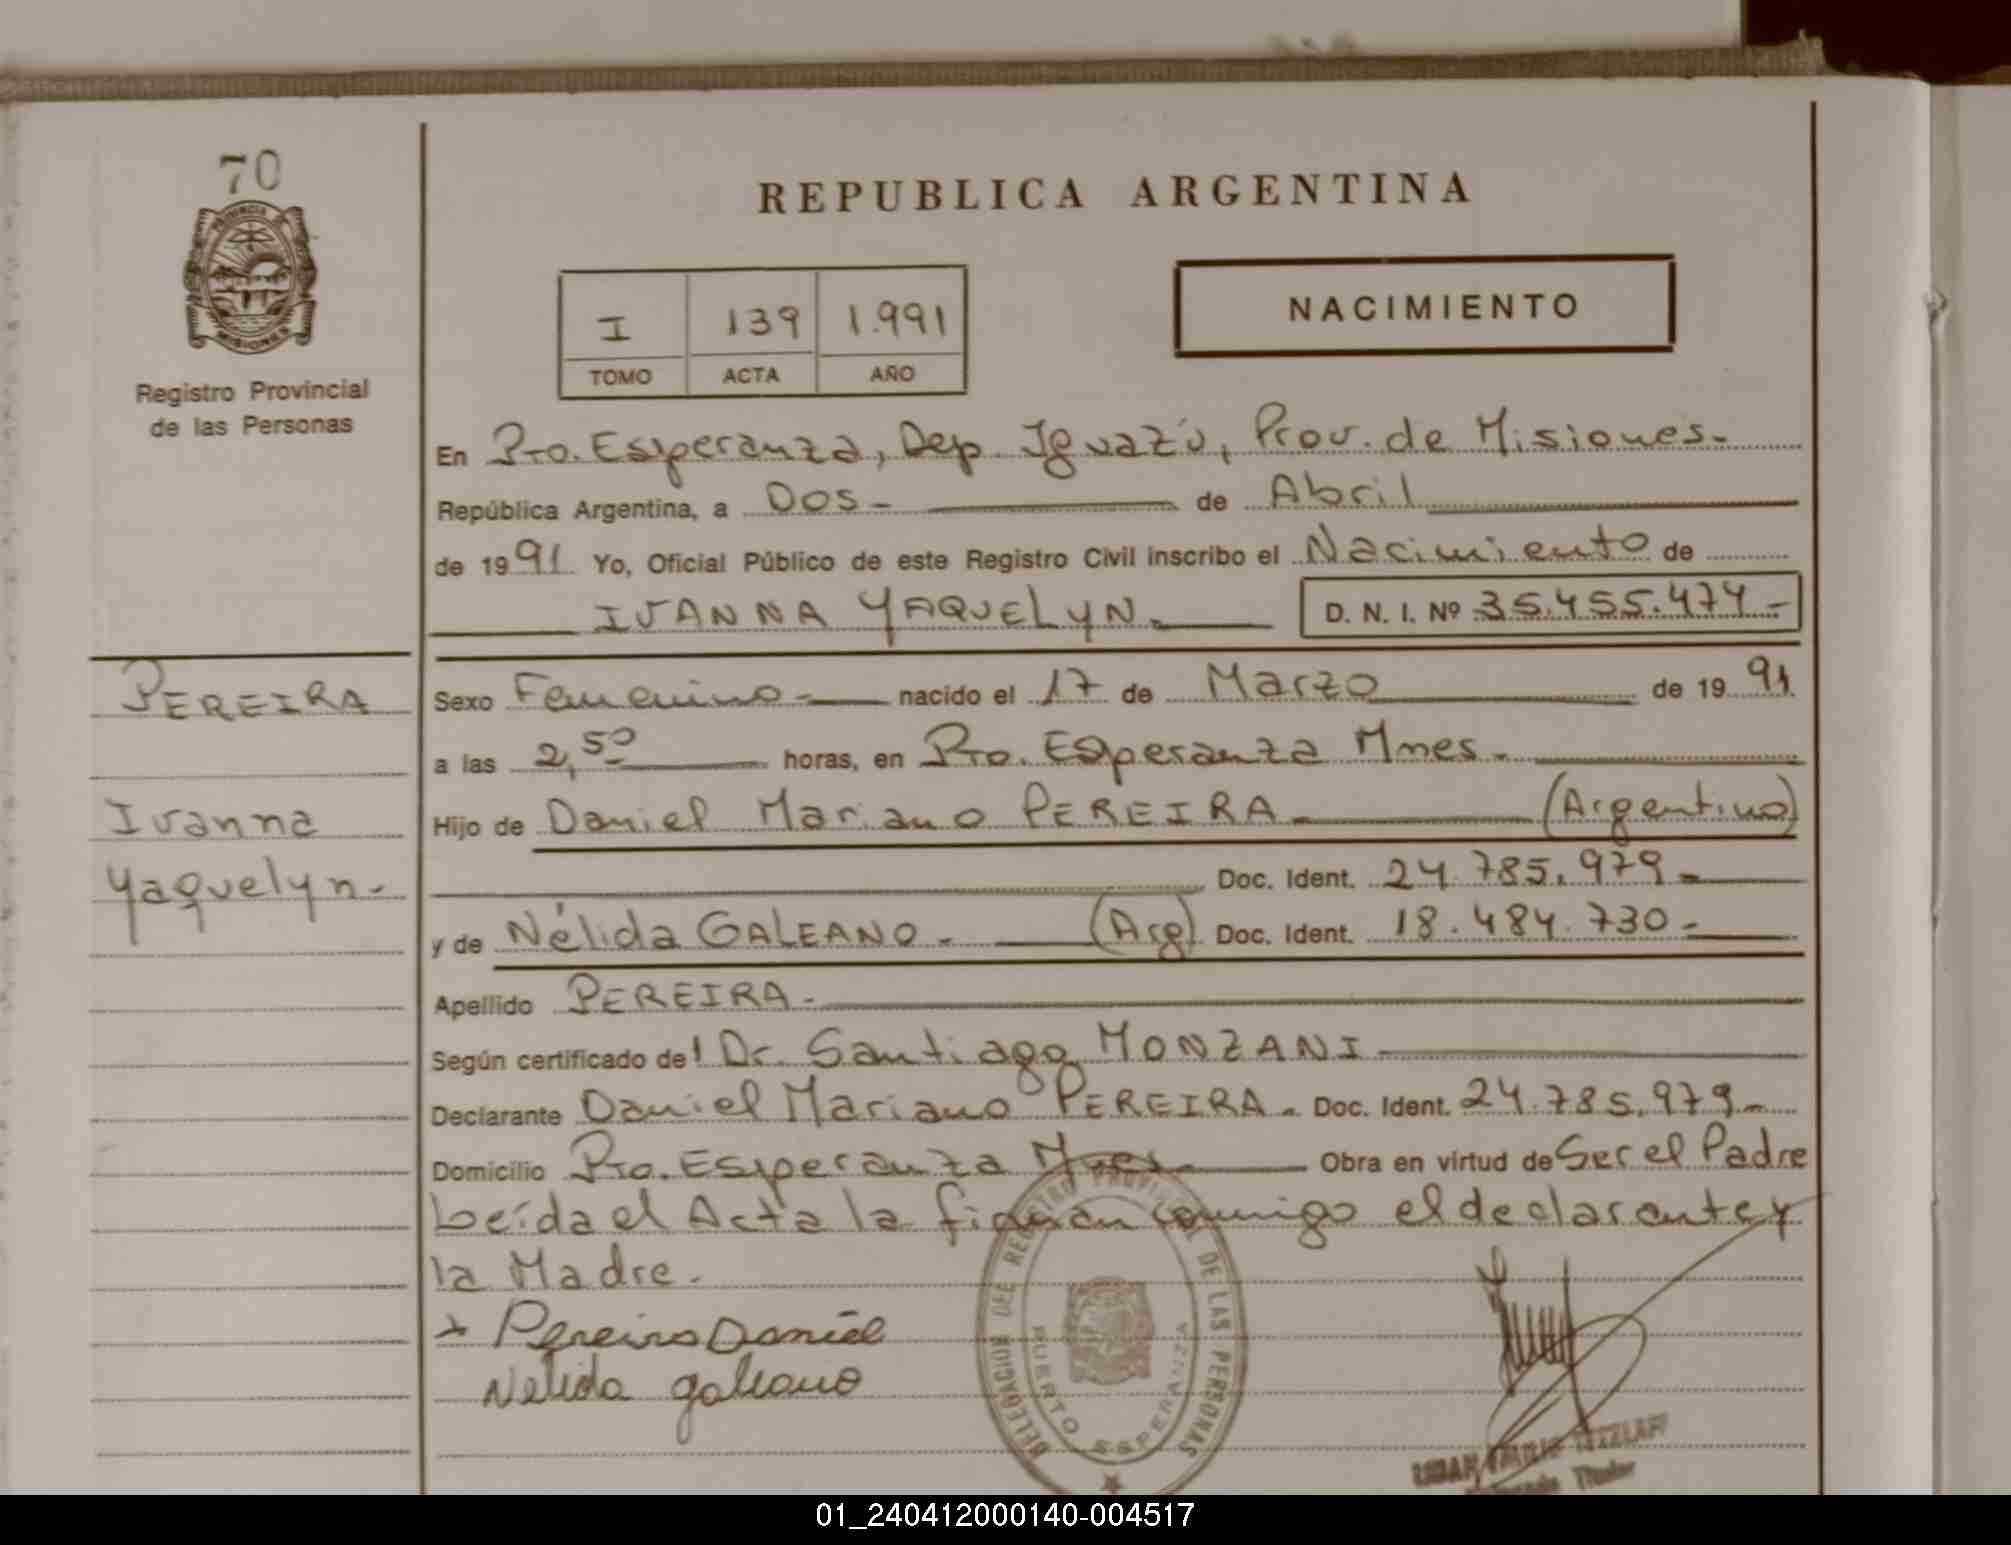 70
PROVINCIA DE
MISIONES
Registro Provincial
de las Personas
REPUBLICA ARGENTINA
I 139 1.991
TOMO ACTA AÑO
NACIMIENTO
En Pto. Esperanza, Dep. Iguazú, Prov. de Misiones.
República Argentina, a Dos de Abril
de 1991 Yo, Oficial Público de este Registro Civil inscribo el Nacimiento de
IVANNA YAQUELYN. D. N. I. Nº 35.455.474
PEREIRA
Ivanna
Yaquelyn.
Sexo Femenino nacido el 17 de Marzo de 1991
a las 2,50 horas, en Pto. Esperanza Mnes.
Hijo de Daniel Mariano PEREIRA. (Argentino)
Doc. Ident. 24.785.979
y de Nélida GALEANO. (Arg) Doc. Ident. 18.484.730
Apellido PEREIRA.
Según certificado del Dr. Santiago MONZANI
Declarante Daniel Mariano PEREIRA. Doc. Ident. 24.785.979
Domicilio Pto. Esperanza Mnes Obra en virtud de Ser el Padre
Leída el Acta la firman conmigo el declarante y
la Madre.
Pereira Daniel
Nélida galeano
DELEGACION DEL REGISTRO PROVINCIAL DE LAS PERSONAS
PUERTO ESPERANZA
Titular
01_240412000140-004517